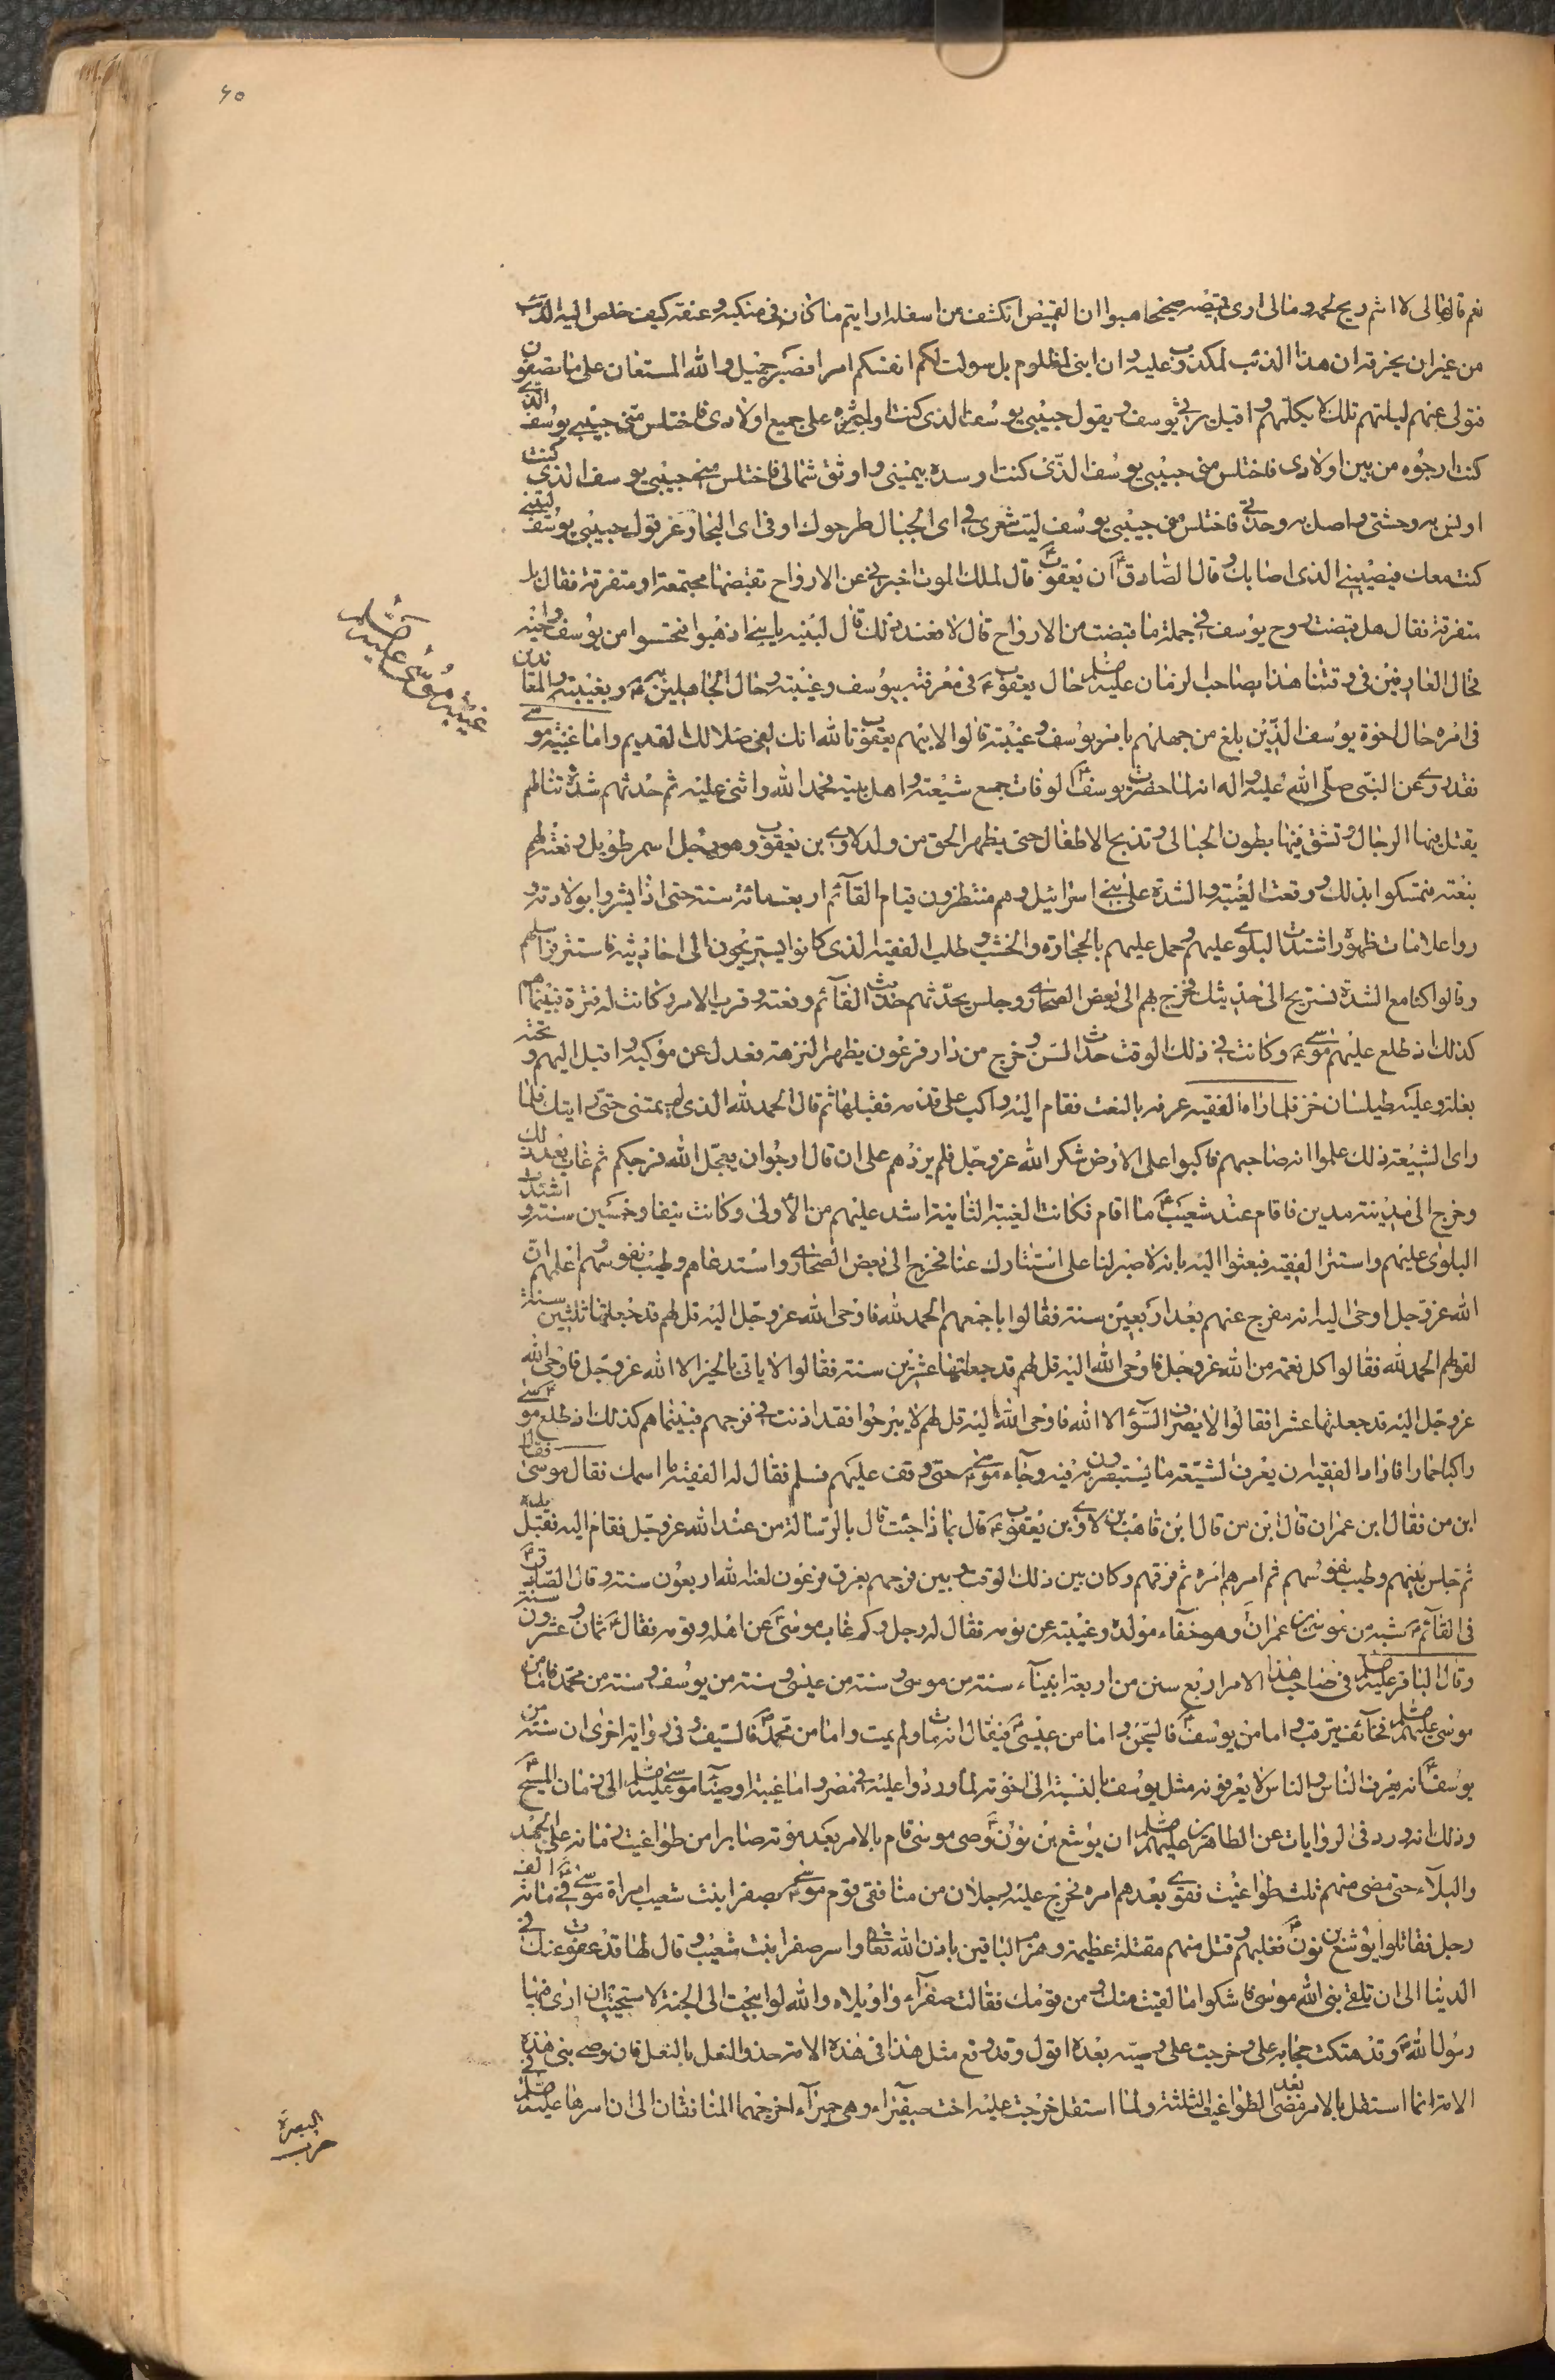 ٤٥
نعم قال فمالى لا اشم ريح لحمه ومالى ارى قميصه صحيحا هبوا ان القميص انكشف من اسفله ارايتم ما كان فى منكبيه وعنقه كيف خلص اليه الذئب
من غير ان يخرقه ان هذا الذئب لمكذوب عليه وان ابنى لمظلوم بل سولت لكم انفسكم امرا فصبر جميل والله المستعان على ما تصفون
فتولى عنهم ليلتهم تلك لا يكلمهم واقبل يرثى يوسف ويقول حبيبى يوسف الذى كنت اوثره على جميع اولادى فاختلس منى حبيبى يوسف الذى
كنت ارجوه من بين اولادى فاختلس منى حبيبى يوسف الذى كنت اوسده بيمينى واوثق شمالى فاختلس منى حبيبى يوسف الذى كنت
اونس به وحشتى واصل به وحدتى فاختلس منى حبيبى يوسف ليت شعرى فى اى الجبال طرحوك او فى اى البحار غرقوك حبيبى يوسف ليتنى
كنت معك فيصيبنى الذى اصابك وقال الصادق ع ان يعقوب ع قال لملك الموت اخبرنى عن الارواح تقبضها مجتمعة او متفرقة فقال بل
متفرقة فقال هل قبضت روح يوسف فى جملة ما قبضت من الارواح قال لا فعند ذلك قال لبنيه يا بنى اذهبوا فتحسسوا من يوسف واخيه
فحال العارفين فى وقتنا هذا بصاحب الزمان عليه السلم حال يعقوب ع فى معرفته بيوسف وغيبته وحال الجاهلين به ع وبغيبته والمعاندين
فى امره حال اخوة يوسف الذين بلغ من جهلهم بامر يوسف وغيبته قالوا لابيهم يعقوب تالله انك لفى ضلالك القديم واما غيبة موسى
فقد روى عن النبى صلى الله عليه واله انه لما حضرت يوسف ع الوفات جمع شيعته واهل بيته فحمد الله واثنى عليه ثم حدثهم شدة تنالهم
يقتل فيها الرجال وتشق فيها بطون الحبالى وتذبح الاطفال حتى يظهر الحق من ولد لاوى بن يعقوب وهو رجل اسمر طويل ونعته لهم
بنعته فتمسكوا بذلك ووقعت الغيبة والشدة على بنى اسرائيل وهم منتظرون قيام القائم اربعمائة سنة حتى اذا بشروا بولادته و
روا علامات ظهوره اشتدت البلوى عليهم وحمل عليهم بالحجارة والخشب وطلب الفقيه الذى كانوا يستريحون الى احاديثه فاستتر فراسلهم
وقالوا كنا مع الشدة نستريح الى حديثك فخرج بهم الى بعض الصحارى وجلس يحدثهم حديث القائم ونعته وقرب الامر وكانت له فترة فبينما هم
كذلك اذ طلع عليهم موسى ع وكانت فى ذلك الوقت حدث السن وخرج من دار فرعون يظهر النزهة فعدل عن موكبه واقبل اليهم وتحته
بغلة وعليه طيلسان خز فلما راه الفقيه عرفه بالنعت فقام اليه واكب على قدمه فقبلها ثم قال الحمد لله الذى لم يمتنى حتى رايتك فلما
راى الشيعة ذلك علموا انه صاحبهم فاكبوا على الارض شكر الله عز وجل فلم يزدهم على ان قال ارجوا ان يعجل الله فرجكم ثم غاب بعد ذلك
وخرج الى مدينة مدين فاقام عند شعيب ع ما اقام فكانت الغيبة الثانية اشد عليهم من الاولى وكانت نيفا وخمسين سنة واشتدت
البلوى عليهم واستتر الفقيه فبعثوا اليه بانه لا صبر لنا على استتارك عنا فخرج الى بعض الصحارى واستدعاهم وطيب نفوسهم واعلمهم ان
الله عز وجل اوحى اليه انه مفرج عنهم بعد اربعين سنة فقالوا باجمعهم الحمد لله فاوحى الله عز وجل اليه قل لهم قد جعلتها ثلثين سنة
لقولهم الحمد لله فقالوا كل نعمة من الله عز وجل فاوحى الله اليه قل لهم قد جعلتها عشرين سنة فقالوا لا ياتى بالخير الا الله عز وجل فاوحى الله
عز وجل اليه قد جعلتها عشرا فقالوا لا يصرف السوء الا الله فاوحى الله اليه قل لهم لا يبرحوا فقد اذنت فى فرجهم فبينما هم كذلك اذ طلع موسى ع
راكبا حمارا فاراد الفقيه ان يعرف الشيعة ما يستبصرون به فيه وجاء موسى ع حتى وقف عليهم فسلم فقال له الفقيه ما اسمك فقال موسى فقال
ابن من فقال ابن عمران قال ابن من قال ابن قاهث بن لاوى بن يعقوب ع قال بماذا جئت قال بالرسالة من عند الله عز وجل فقام اليه فقبل يده
ثم جلس بينهم وطيب نفوسهم ثم امرهم امره ثم فرقهم وكان بين ذلك الوقت وبين فرجهم بغرق فرعون لعنه الله اربعون سنة وقال الصادق ع
فى القائم ع شبه من موسى بن عمران وهو خفاء مولده وغيبته عن قومه فقال له رجل وكم غاب موسى ع عن اهله وقومه فقال ع ثمان وعشرون سنة
وقال الباقر عليه السلم فى صاحب هذا الامر اربع سنن من اربعة انبياء سنة من موسى وسنة من عيسى وسنة من يوسف وسنة من محمد فاما من
موسى عليهم السلم فخائف يترقب واما من يوسف ع فالسجن واما من عيسى ع فيقال انه مات ولم يمت واما من محمد ص فالسيف وفى رواية اخرى ان سنته من
يوسف ع انه يعرف الناس والناس لا يعرفونه مثل يوسف بالنسبة الى اخوته لما وردوا عليه فى مصر واما غيبة اوصياء موسى عليه السلم الى زمان المسيح ع
وذلك انه ورد فى الروايات عن الطاهرين عليهم السلم ان يوشع بن نون ع وصى موسى قام بالامر بعد موته صابرا من طواغيت زمانه على الجهد
والبلاء حتى مضى منهم ثلث طواغيت فقوى بعدهم امره فخرج عليه رجلان من منافقى قوم موسى ع بصفرا بنت شعيب امراة موسى ع فى مائة الف
رجل فقاتلوا يوشع بن نون ع فغلبهم وقتل منهم مقتلة عظيمة وهزم الباقين باذن الله تعالى واسر صفرا بنت شعيب وقال لها قد عفوت عنك فى
الدنيا الى ان تلقى نبى الله موسى فاشكوا ما لقيت منك ومن قومك فقالت صفراء واويلاه والله لو ابيحت الى الجنة لاستحييت ان ارى فيها
رسول الله ع وقد هتكت حجابه على وخرجت على وصيه بعده اقول وقد وقع مثل هذا فى هذه الامة حذو النعل بالنعل فان وصى نبى هذه
الامة انما استقل بالامر بعد مضى الطواغيت الثلثة ولما استقل خرجت عليه اخت صفيراء وهى حميراء اخرجهما المنافقان الى ان اسرها عليه السلم فى
غيبة موسى عليه السلم
البصرة
حرب